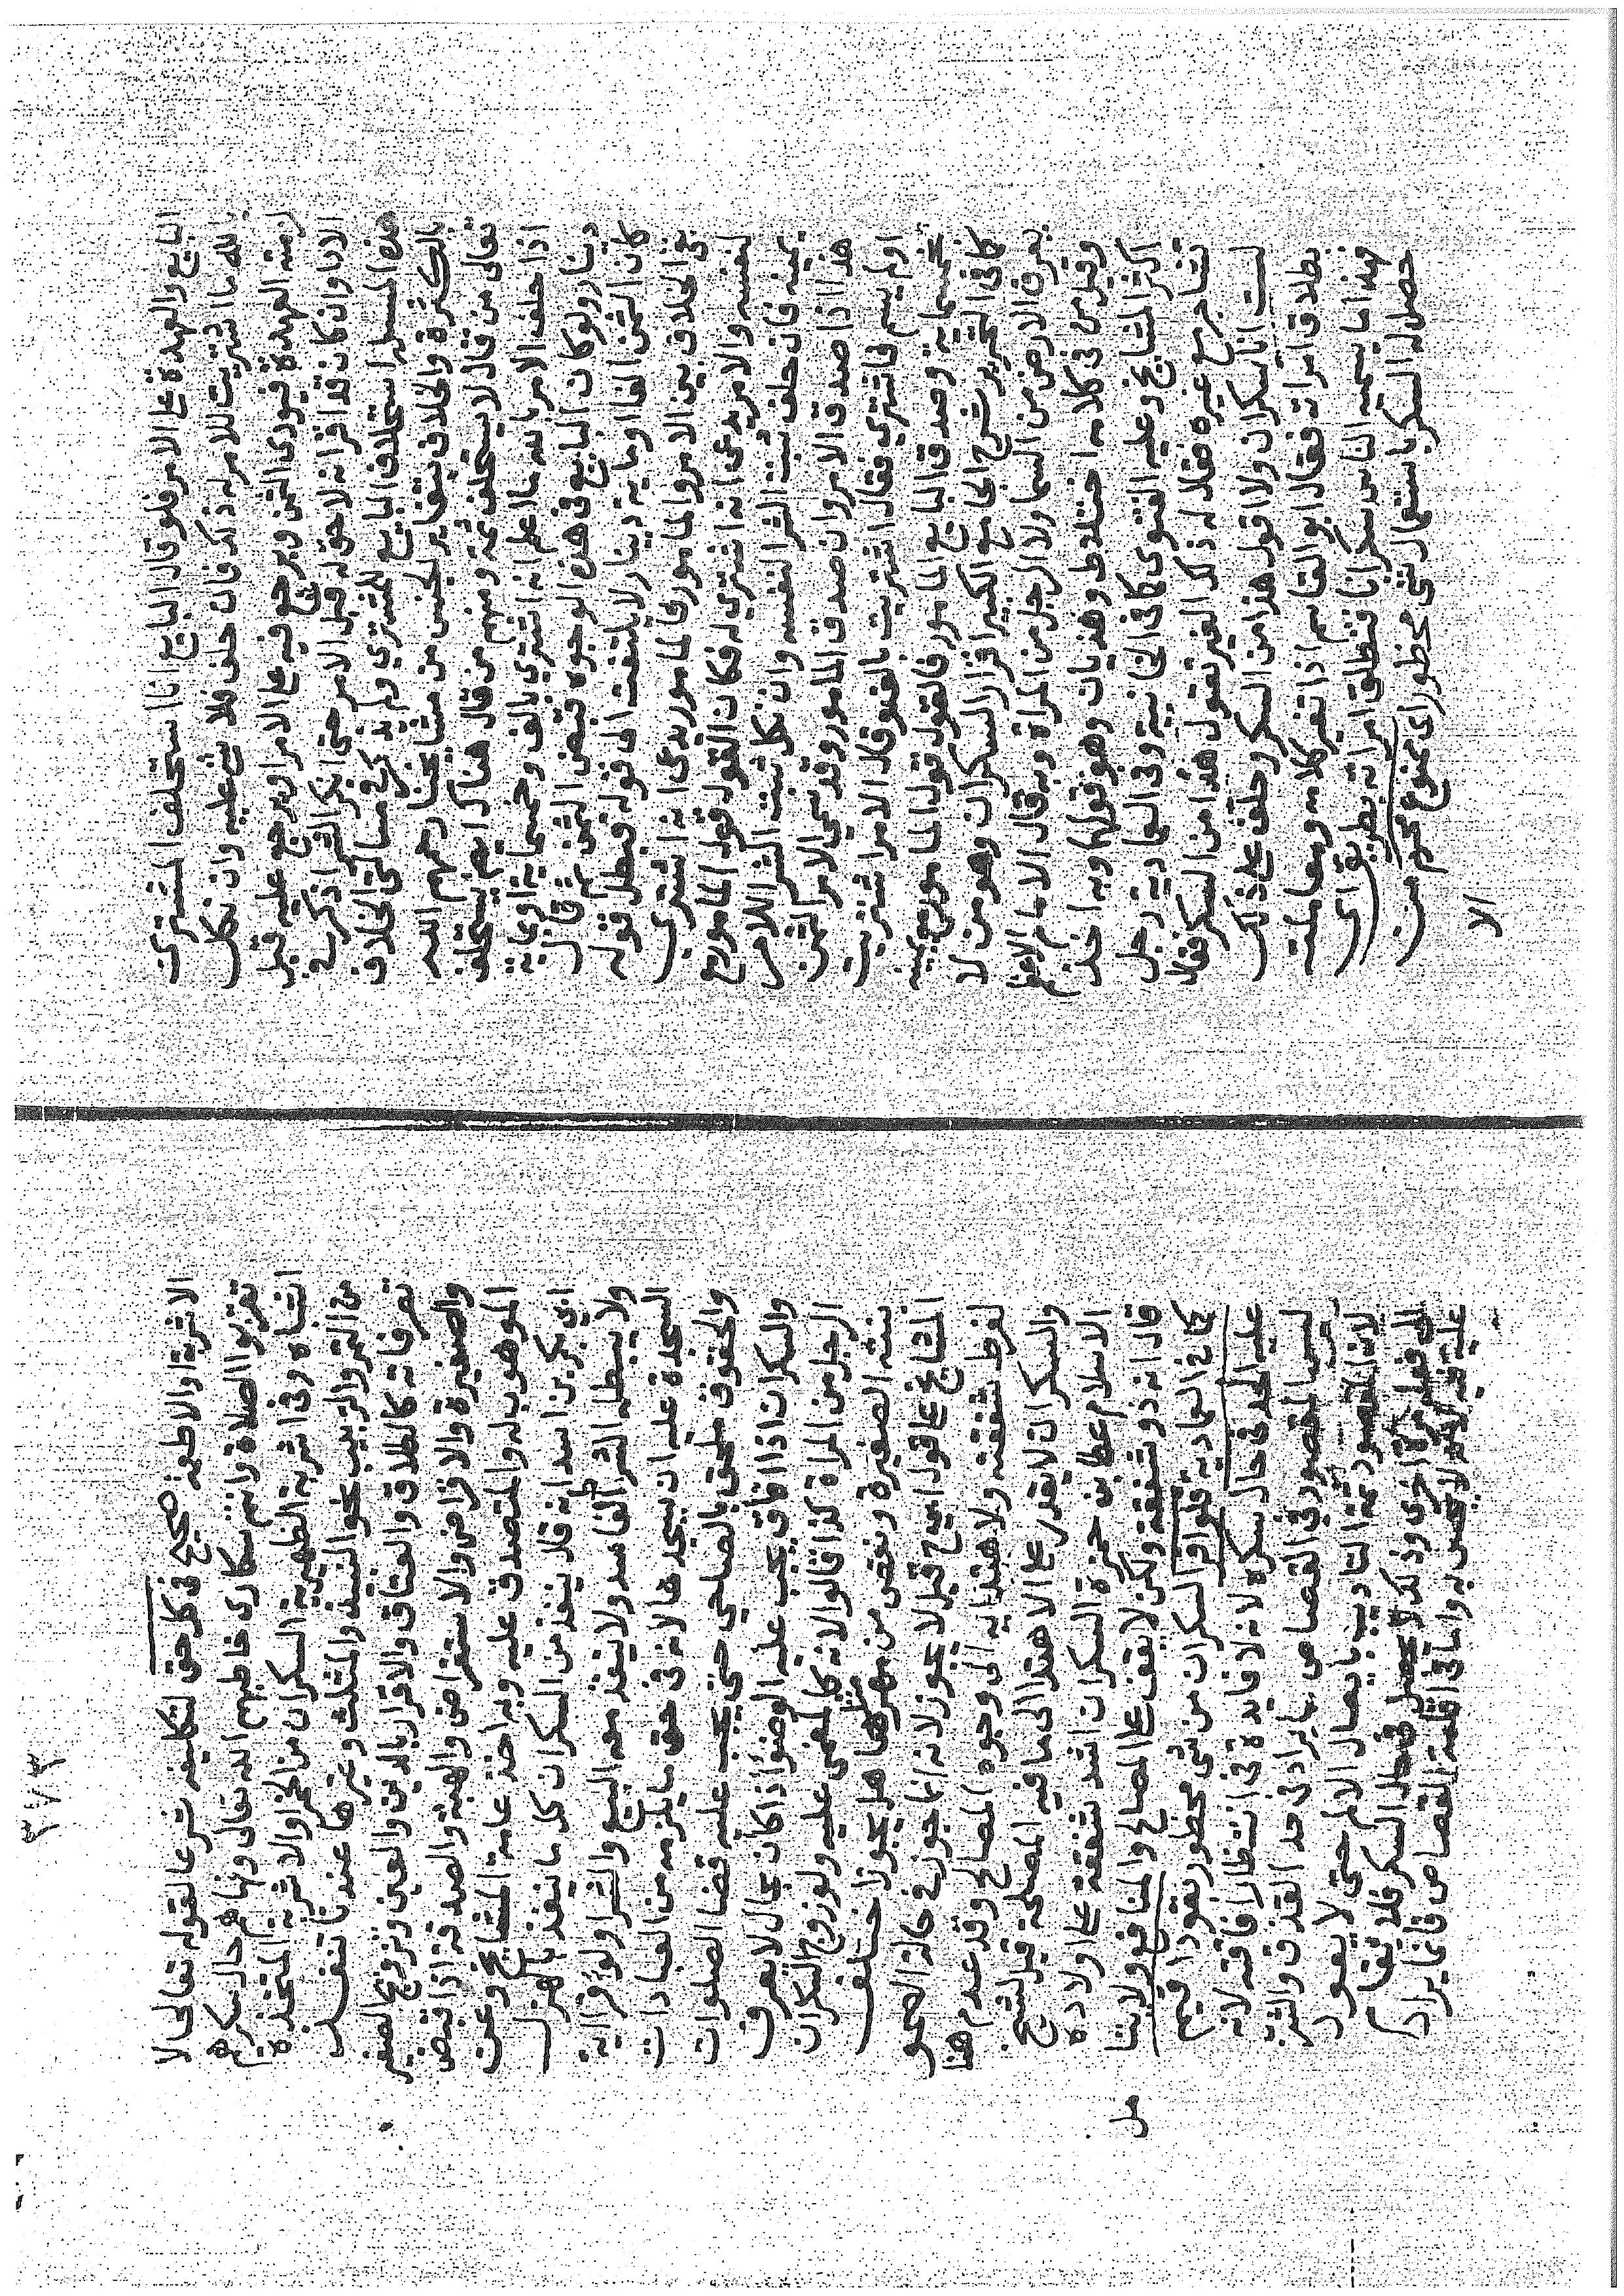 البايع والعهدة على الامر فلو قال البايع انا استحلف المشتري
بالله ما اشتريت للامر له ذلك فان حلف فلا شئ عليه وان نكل
لزمته العهدة فيودي الثمن ويرجع فيه على الامر او يرجع عليه قبل
الادا وان كان قد اقر انه لاحق له قبل الامر حتى انكر الشرا ذكر في
هذه المسيلة استحلاف البايع للمشتري ولم يذكر في مسالتي الخلاف
بالكثرة والخلاف بتغاير الجنس من مشايخنا رحمهم الله
تعالى من قال لا يستحلف ثمة ومنهم من قال هناك ايضا يستحلف
اذا حلف الامر بالله ما علم انه اشتري بالف وخمسماية او بماية
دينار ولو كان البايع في هذه الوجوه قبض الثمن ثم قال
كان الثمن الفا او ماية دينار لا يلتفت الى قوله فبطل قوله
بقي الخلاف بين الامر والمامور فالمامور يدعي انه اشتري
لنفسه والامر يدعي انه اشتري له فكان القول قول المامور مع
يمينه فان حلف ثبت الشرا لنفسه وان نكل ثبت الشرا للامر
هذا اذا صدق الامر وان صدق المامور وقد سمي الامر الثمن
اولم يسم فاشتري فقال اشتريت بالف وقال الامر اشتريت
بخمسماية وصدق البايع المامور فالقول قول المامور مع يمينه
كما في التحرير شرح الجامع الكبير اقرار السكران وهو من لا
يعرف الارض من السما ولا الرجل من المراة وبه قال الامام الاعظم
وقيل من في كلامه اختلاط وهذيان وهو قولهما وبه اخذ
اكثر المشايخ وعليه الفتوى كما في الخانية وفي العمادية رجل
تشاجر مع غيره فقال له ذلك الغير تقول هذا من السكر فقال
لست انا سكران ولا اقول هذا من السكر وحلف على ذلك
بطلاق امراته فقال ابو القاسم اذا تغير كلامه ومعاملته
فهذا ما يسميه الناس سكرانا فتطلق امراته بطريق اي
حصل له السكر باستعمال شئ محظور اي ممنوع محرم من
الا
٣٧٣
الاشربة والاطعمة صحيح في كل حق لتكليفه شرعا لقوله تعالى لا
تقربوا الصلاة وانتم سكارى خاطبهم الله تعالى ونهاهم حال سكرهم
انتباه وفي اشربة الظهيرية السكران من الخمر والاشربة المتخذة
من التمر والزبيب نحو النبيذ والمثلث وغيرها عندنا تنفذ
تصرفاته كالطلاق والعتاق والاقرار بالدين والعين وتزويج الصغير
والصغيرة والاقراض والاستقراض والهبة والصدقة اذا قبض
الموهوب له والمتصدق عليه وبه اخذ عامة المشايخ وعن
ابي بكر بن اسد انه قال ينفذ من السكران كل ما ينفذ بالهزل
ولا يبطله الشرط الفاسد ولا ينفذ منه البيع والشرا ولو قرا اية
السجدة عليه ان يسجدها لانه في حق ما يلزمه من العبادات
والحقوق ملحق بالصاحي حتى يجب عليه قضا الصلوات
والسكران اذا افاق يجب عليه الوضوء اذا كان بحال لا يعرف
الرجل من المراة كذا قالوا لانه كالمغمي عليه ولو زوج السكران
بنته الصغيرة ونقص من مهر مثلها هل يجوز اختلف
المشايخ على قول ابي ح قيل لا يجوز لانه انما جوز في حالة الصحو
لفرط شفقته ولاهتدايه الى وجوه المصالح وقد عدم هنا
والسكران لا يقدر على الاهتدا الى ما فيه المصلحة قيل لشيخ
الاسلام عطا بن حمزة السكران اشد شفقة على اولاده
قال انه ذو شفقة ولكن لا يقف على المصالح والمنافع ولا يتا مل
كما في العمادية فلو اقر السكران من شي محظور بقود اقيم
عليه الحد في حال سكره لانه لا فايدة في انتظار افاقته لانه
ليس المقصود في القصاص ما يراد في حد القذف والشرب
لان المقصود ثمة التاديب بايصال الالم حتى لا يعود
الى فعله مرة اخرى وذلك لا يحصل في حال السكر فلا يقام
عليه فيه لانه لا يحس به واما في اقامة القصاص فانما يراد